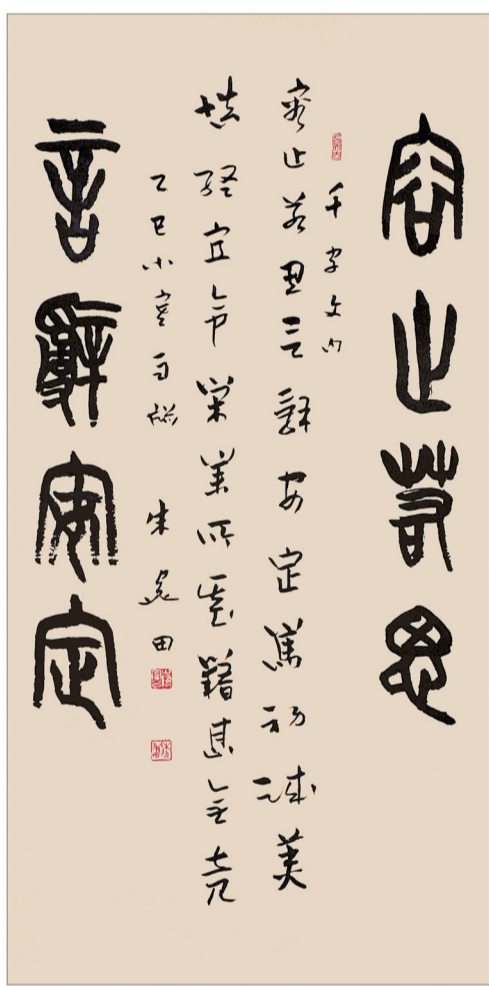 容止若思
千字文
容止若思言辭安定篤初誠美
慎終宜令榮業所基籍甚無竟
乙巳小寒 朱 田
言辭安定